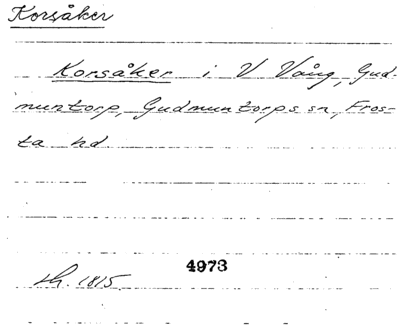 Korsåker
Korsåker i V Vång, Gud-
muntorp, Gudmuntorps sn, Fros-
ta hd
4973
sh. 1815